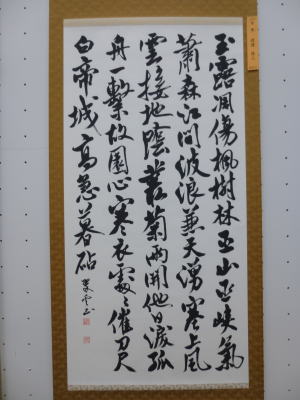 玉露凋傷楓樹林巫山巫峡氣
蕭森江間波浪兼天湧塞上風
雲接地陰叢菊兩開他日淚孤
舟一繫故園心寒衣處〻催刀尺
白帝城高急暮砧